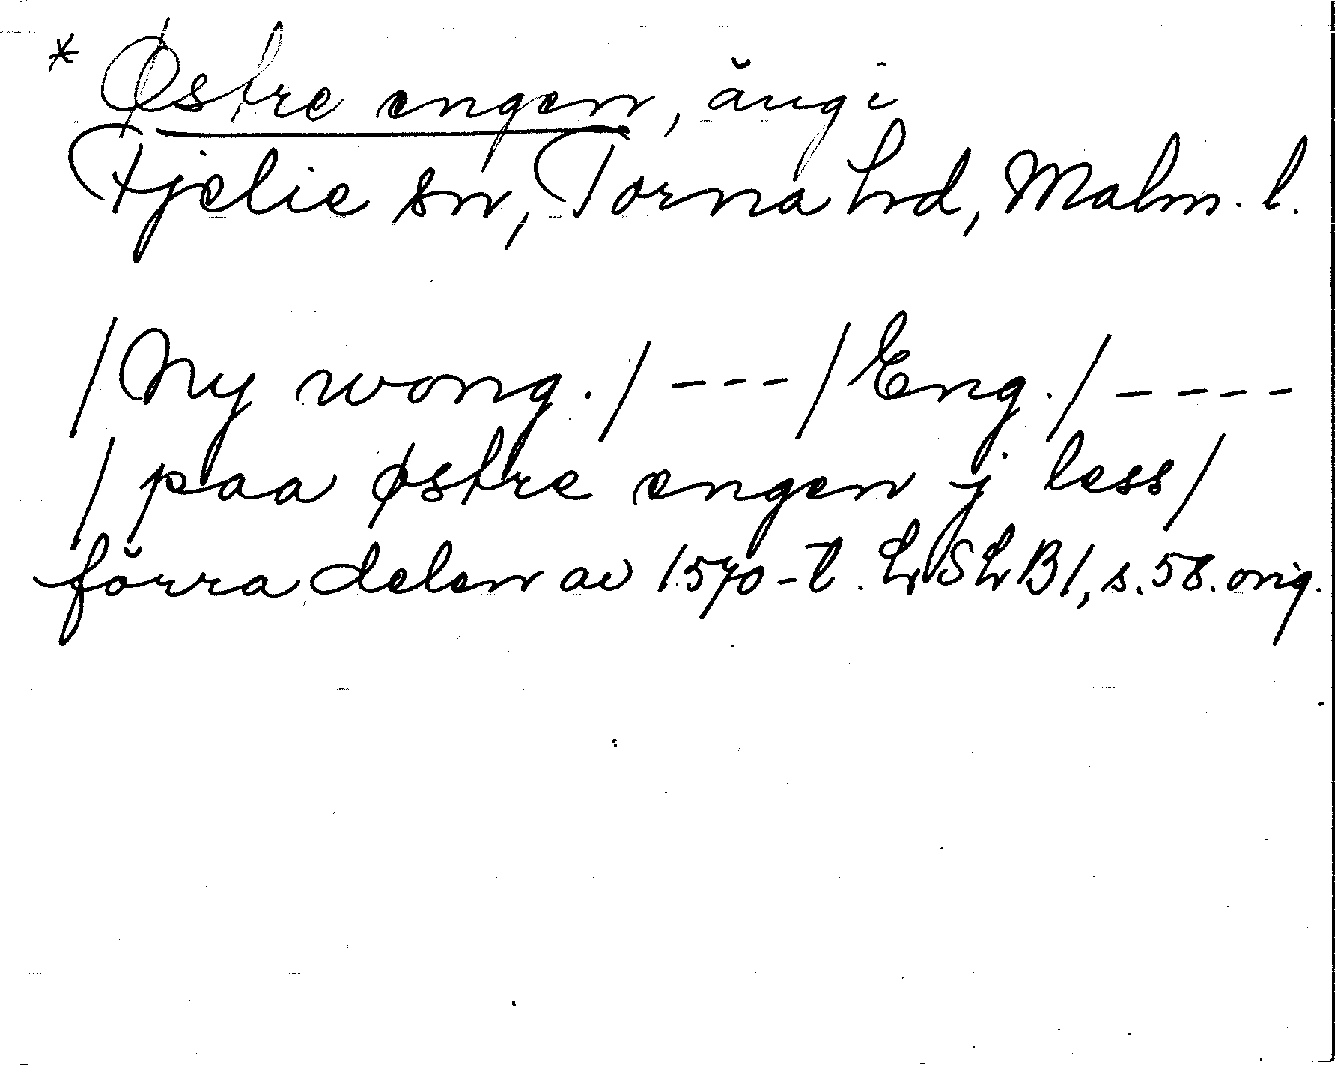 * Østre engen, äng i
Fjelie sn, Torna hd, Malm. l.
/Ny wong./ --- /Eng./ ----
/paa østre engen j less/
förra delen av 1570-t. LSLB1, s. 58. orig.